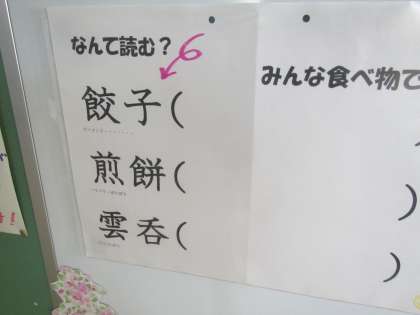 なんて読む？
餃子(
煎餅(
雲呑(
みんな食べ物で
)
)